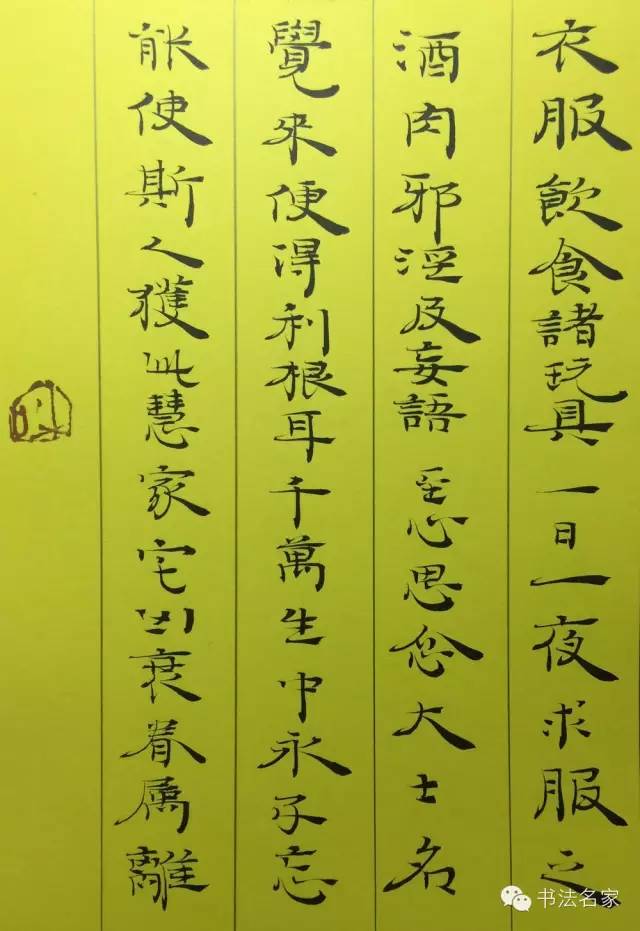 衣服飲食諸玩具一日一夜求服之
酒肉邪淫及妄語至心思念大士名
覺來便得利根耳千萬生中永不忘
能使斯人獲此慧家宅凶衰眷屬離
书法名家